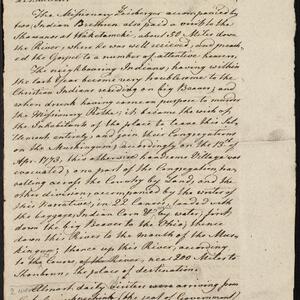 The Missionary Zeisberger accompanied by
two Indian Brethren also paid a visit to the
Shawanos at Waketameki, about 50 Miles down
the River, where he was well received, and preach-
ed the Gospel to a number of attentive hearers.
The neighbouring Indians, having within
the last Year become very troublesome to the
Christian Indians residing on big Beaver; and
when drunk having come on purpose to murder
the Missionary Rothe; it became the wish of
the Inhabitants of the place to leave this Set-
tlement entirely, and join their Congregations
on the Muskingum; accordingly on the 13th
Apr. 1773, this otherwise handsome Village was
evacuated; one part of the Congregation, tra-
velling across the Country by Land; and the
other division, accompanied by the writer of
this Narrative, in 22 Canoes, (laden with
the baggage, Indian Corn &c) by water, first
down the big Beaver to the Ohio; thence
down this River to the mouth of the Mus-
kingum; thence up this River, according
to the Course of the River, near 200 Miles to
Shönbrun, the place of destination.
Almost daily visitors were arriving from
(the seat of Government)